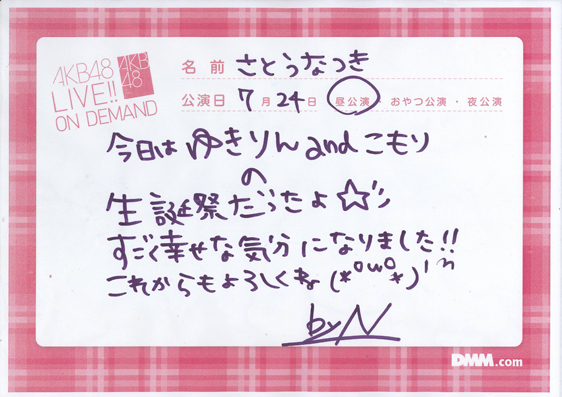 AKB48
LIVE!!
ON DEMAND
AKB
48
名前 さとうなつき
公演日 7月24日 昼公演・おやつ公演・夜公演
今日は ゆきりん and こもり
の
生誕祭だったよ☆ッ
すごく幸せな気分になりました!!
これからもよろしくね(*°ω°*)'"
by N
DMM.com